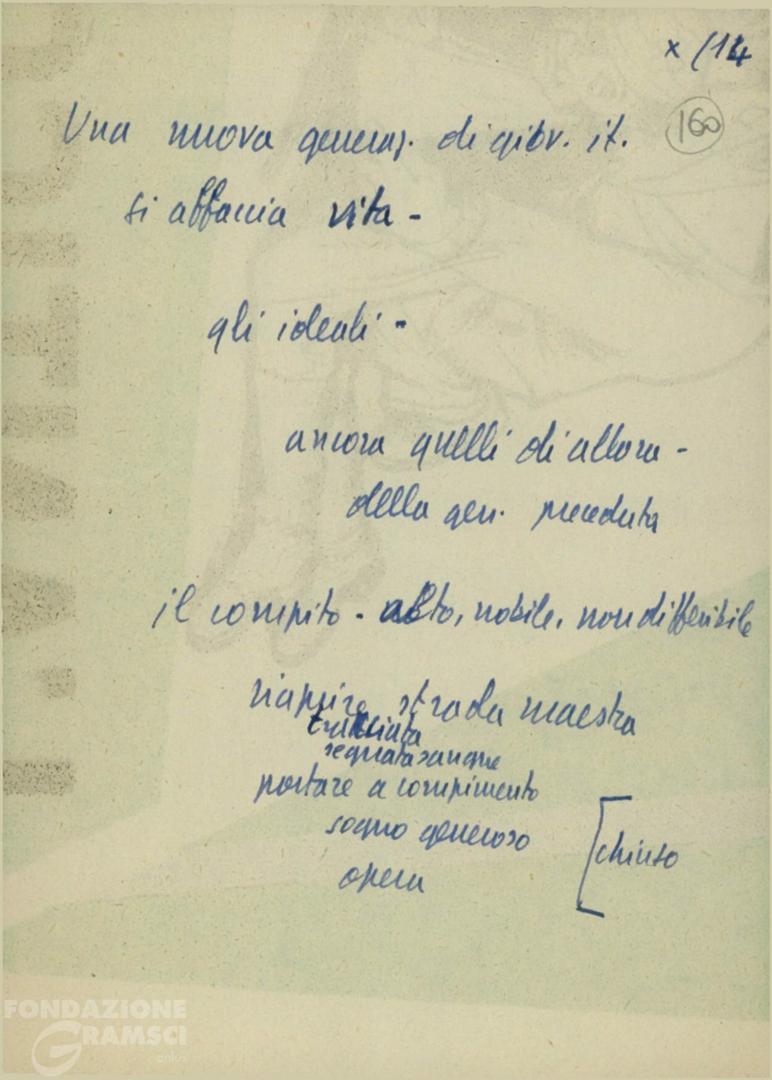 x/14
160
Una nuova generaz. di giov. it.
si affaccia vita -
gli ideali -
ancora quelli di allora -
della gen. preceduta
il compito - alto, nobile, non differibile
riaprire strada maestra
tracciata
segnata sangue
portare a compimento
sogno generoso
opera
[chiuso
FONDAZIONE
GRAMSCI
onlus